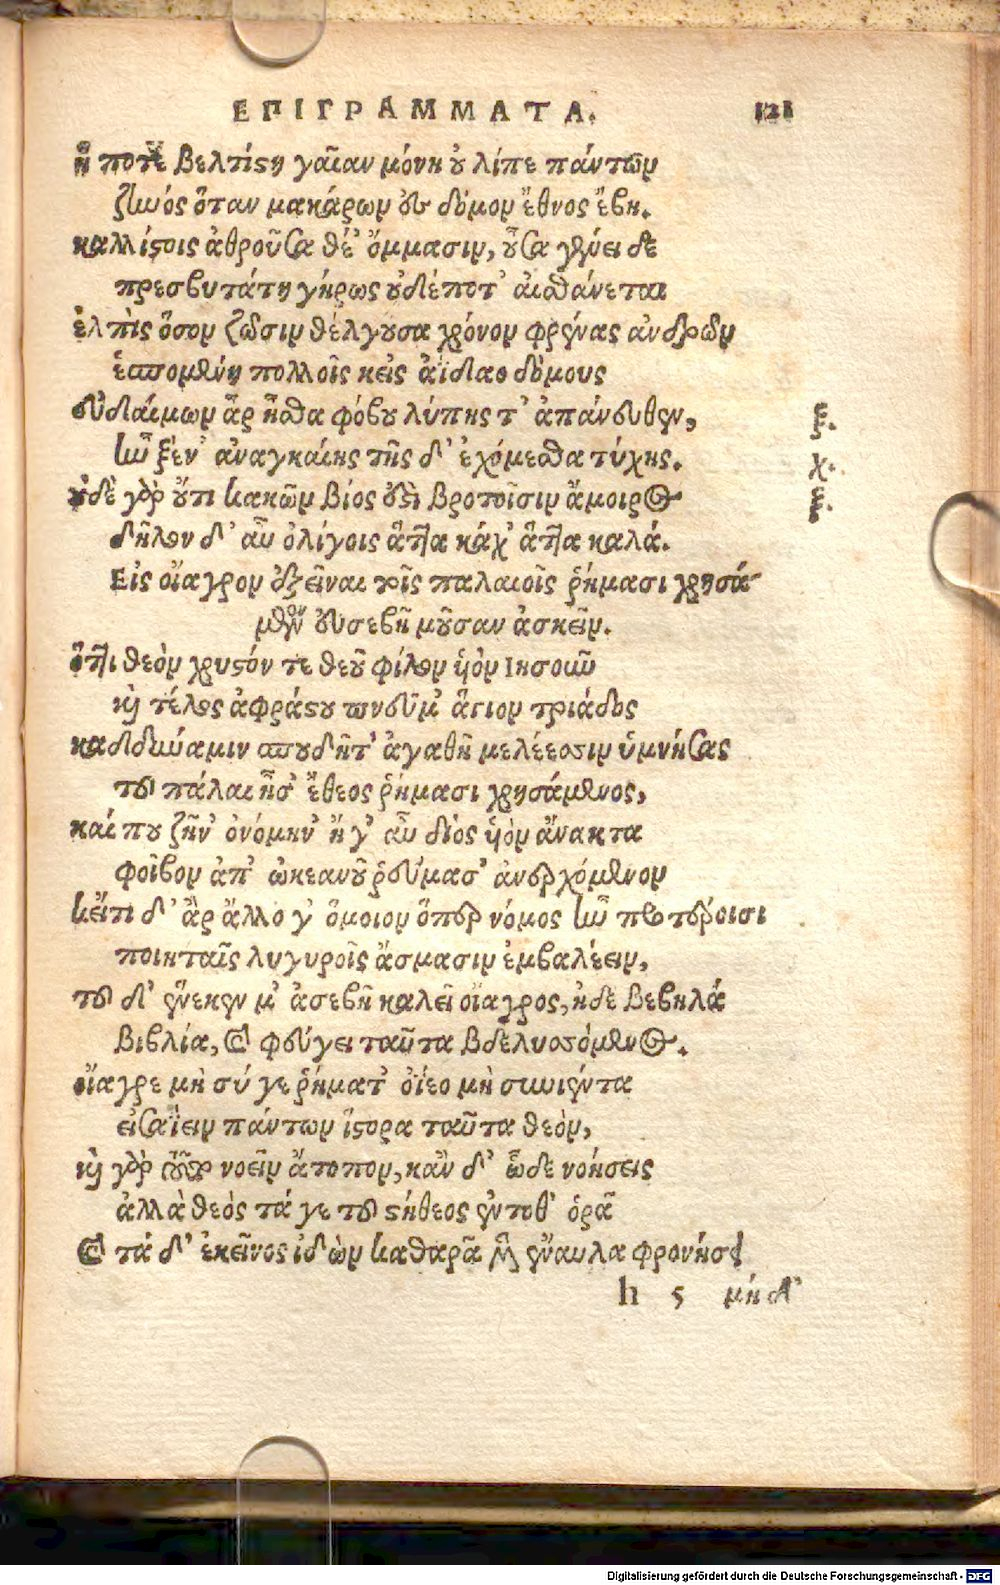 ΕΠΙΓΡΑΜΜΑΤΑ. 121
ἥ ποτε βελτίστη γαῖαν μόνη οὐ λίπε πάντων
ζωὸς ὅταν μακάρων εὖ δόμον ἔθνος ἔβη.
καλλίστοις ἀθροῦσα θέ' ὄμμασιν, οὖσα γέρει δὲ
πρεσβυτάτη γήρως οὐδέποτ' αἰσθάνεται
ἐλπὶς ὅσον ζῶσιν θέλγουσα χρόνον φρένας ἀνδρῶν
ἑσπομένη πολλοῖς κεἰς ἀΐδαο δόμους
εὐδαίμων ἂρ ἦσθα φόβου λύπης τ' ἀπάνευθεν, ξ.
ὦ ξέν' ἀναγκαίης τῆς δ' ἐχόμεσθα τύχης. χ.
οὐδὲ γὰρ οὔτι κακῶν βίος ἐστὶ βροτοῖσιν ἄμοιρος ξ.
δῆλον δ' αὖ ὀλίγοις ἅττα κάχ' ἅττα καλά.
Εἰς οἴαγρον ἐξεῖναι τοῖς παλαιοῖς ῥήμασι χρησά-
μενον εὐσεβῆ μοῦσαν ἀσκεῖν.
ὅττι θεὸν χριστόν τε θεοῦ φίλον υἱὸν Ιησοῦν
καὶ τέλος ἀφράστου πνεῦμ' ἅγιον τριάδος
καδδύναμιν σπουδῆτ' ἀγαθῇ μελέεσσιν ὑμνήσας
τοῦ πάλαι ἦσ' ἔθεος ῥήμασι χρησάμενος,
καί που ζῆν' ὀνόμην' ἤ γ' αὖ διὸς υἱὸν ἄνακτα
φοῖβον ἀπ' ὠκεανοῦ ῥεύμασ' ἀνερχόμενον
κεἴτι δ' ἂρ ἄλλο γ' ὅμοιον ὅπερ νόμος ὦ προτέροισι
ποιηταῖς λυγυροῖς ἄσμασιν ἐμβαλέειν,
τοῦ δ' ἕνεκεν μ' ἀσεβῆ καλεῖ οἴαγρος, ἠδὲ βεβηλά
βιβλία, καὶ φεύγει ταῦτα βδελυσσόμενος.
οἴαγρε μὴ σύ γε ῥήματ' οἴεο μὴ συνιέντα
εἰσαΐειν πάντων ἵστορα ταῦτα θεὸν,
καὶ γὰρ νοεῖν ἄτοπον, κἂν δ' ὧδε νοήσεις
ἀλλὰ θεὸς τά γε τοῦ στήθεος ἔντοθ' ὁρᾷ
καὶ τά δ' ἐκεῖνος ἰδὼν καθαρᾶ μὴν ἔναυλα φρονήσει
h 5 μήδ'